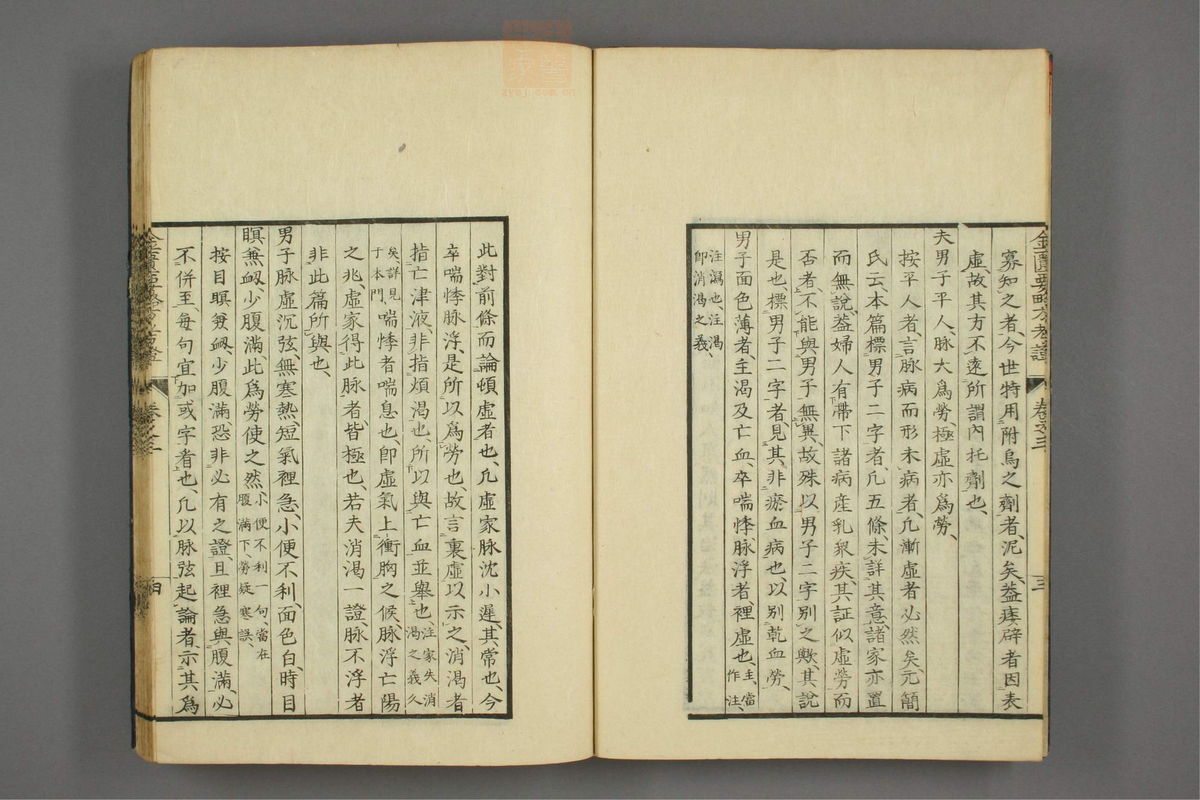 寡知之者、今世特用附烏之劑者、泥矣、蓋痿躃者因表
虛、故其方不遠所謂內托劑也、
夫男子平人、脉大爲勞、極虛亦爲勞、
按平人者、言脉病而形未病者、凡漸虛者必然矣、元簡
氏云、本篇標男子二字者、凡五條、未詳其意、諸家亦置
而無說、蓋婦人有帶下諸病產乳衆疾、其証似虛勞而
否者、不能與男子無異、故殊以男子二字別之歟、其說
是也、標男子二字者、見其非瘀血病也、以別乾血勞、
男子面色薄者、主渴及亡血、卒喘悸、脉浮者裡虛也、主、當作注、
注瀉也、注渴
即消渴之義、
金匱要略方考證
卷之三
三
此對前條而論頓虛者也、凡虛家脉沈小遲、其常也、今
卒喘悸脉浮、是所以爲勞也、故言裏虛以示之、消渴者
指亡津液、非指煩渴也、所以與亡血並舉也、注家失消渴之義久
矣、詳見于本門、喘悸者喘息也、卽虛氣上衝胸之候、脉浮亡陽
之兆、虛家得此脉者、皆極也、若夫消渴一證、脉不浮者
非此篇所與也、
男子脉虛沉弦、無寒熱、短氣裡急、小便不利、面色白、時目
瞑兼衂、少腹滿、此爲勞使之然、小便不利一句、當在腹滿下、勞疑寒誤、
按目瞑兼衂、少腹滿恐非必有之證、且裡急與腹滿、必
不併至、每句宜加或字者也、凡以脉弦起論者、示其爲
卷之三
四